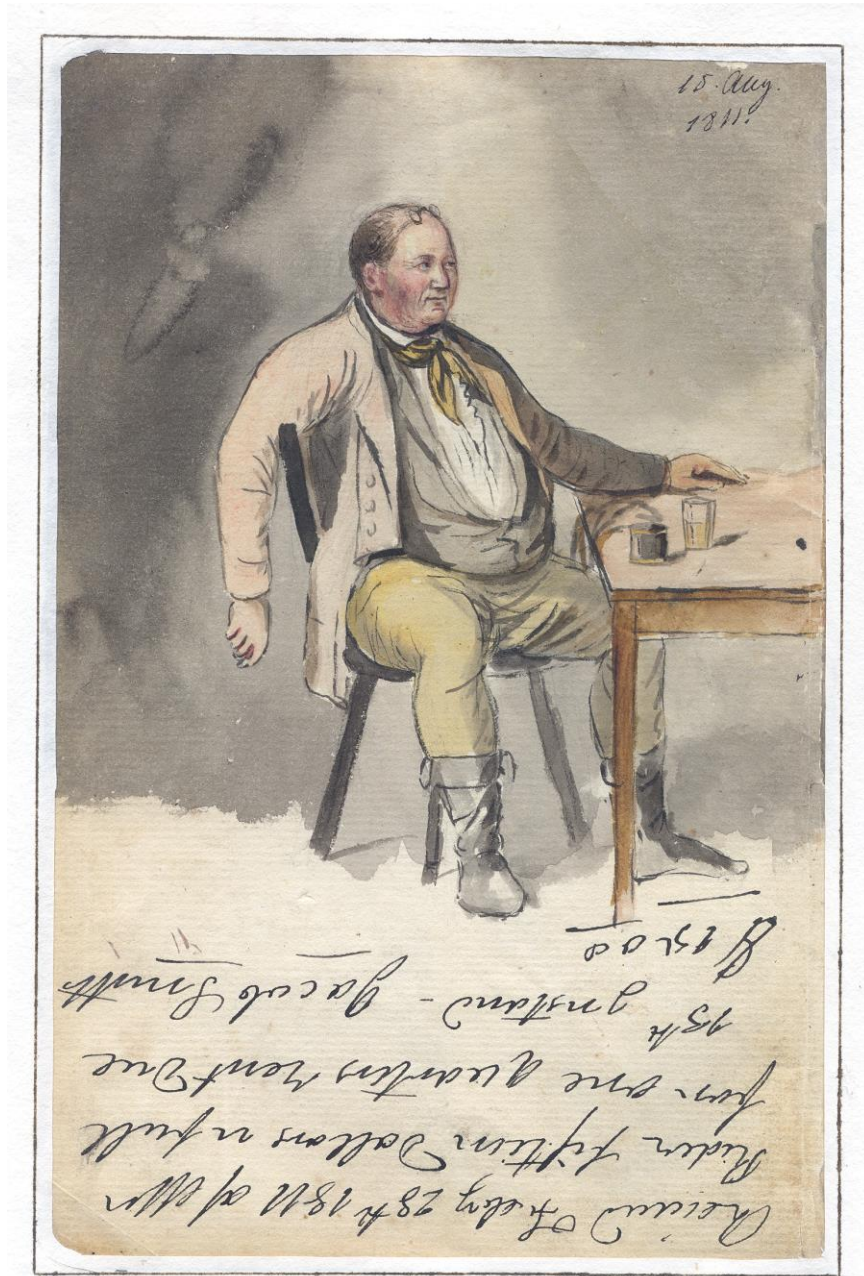 15. Aug.
1811.
Feby 28th 1811 of Mr
Rider fiftein Dollars n full
for one quarters rent Due
15th Instand - Jacob Smith
$ 15.00